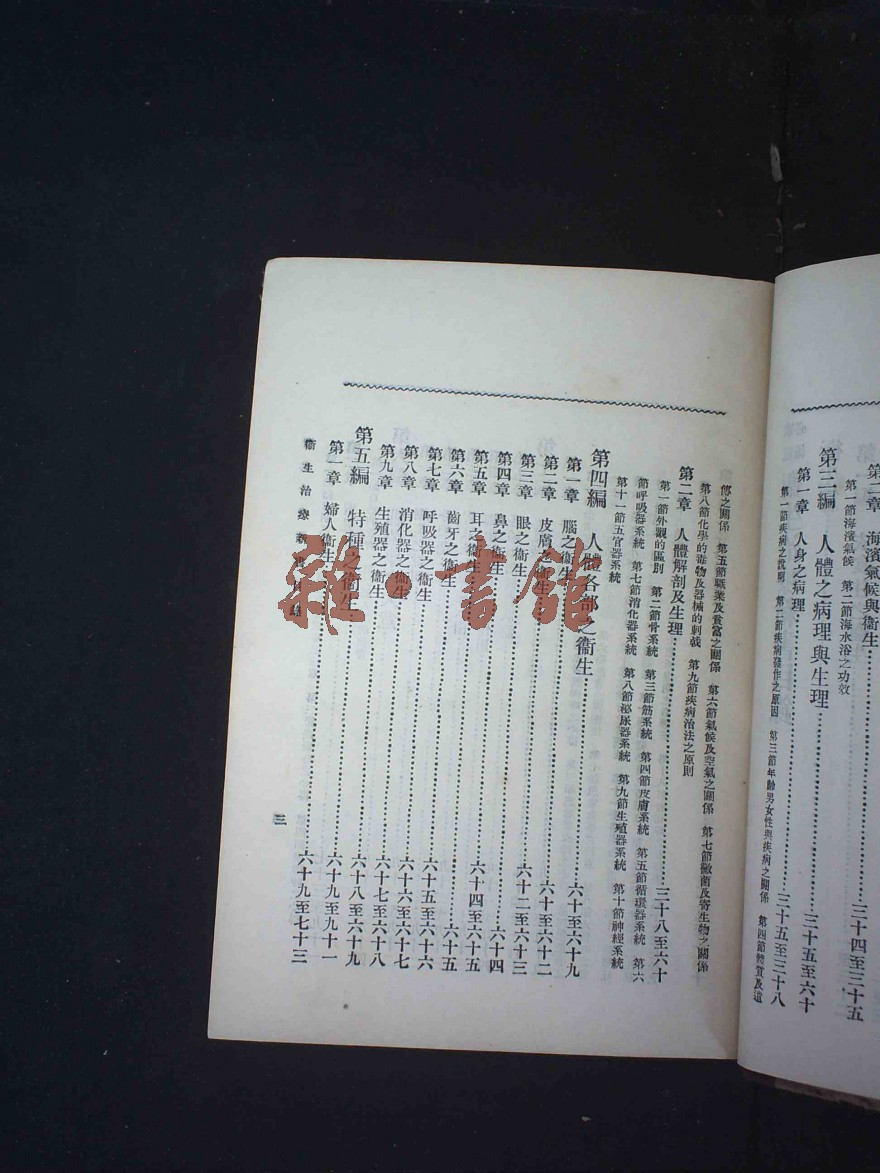 第二章　海濱氣候與衛生……三十四至三十五
第一節海濱氣候　第二節海水浴之功效
第三編　人體之病理與生理……三十五至六十
第一章　人身之病理……三十五至三十八
第一節疾病之說明　第二節疾病發作之原因　第三節年齡男女性與疾病之關係　第四節體質及遺
傳之關係　第五節職業及貧富之關係　第六節氣候及空氣之關係　第七節黴菌及寄生物之關係
第八節化學的毒物及器械的刺戟　第九節疾病治法之原則
第二章　人體解剖及生理……三十八至六十
第一節外觀的區別　第二節骨系統　第三節筋系統　第四節皮膚系統　第五節循環器系統　第六
節呼吸器系統　第七節消化器系統　第八節泌尿器系統　第九節生殖器系統　第十節神經系統
第十一節五官器系統
第四編　人體各部之衛生……六十至六十九
第一章　腦之衛生……六十至六十二
第二章　皮膚之衛生……六十二至六十三
第三章　眼之衛生……六十四
第四章　鼻之衛生……六十四至六十五
第五章　耳之衛生……六十五
第六章　齒牙之衛生……六十五至六十六
第七章　呼吸器之衛生……六十六至六十七
第八章　消化器之衛生……六十七至六十八
第九章　生殖器之衛生……六十八至六十九
第五編　特種之衛生……六十九至九十一
第一章　婦人衛生……六十九至七十三
衛生治療新書目錄
三
雜·書館